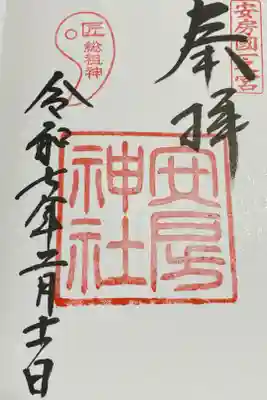 安房國一之宮
奉拝
安房
神社
匠 総祖神
令和七年二月十一日